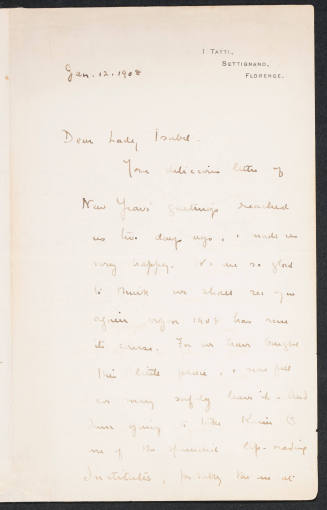 I TATTI,
SETTIGNANO,
FLORENCE.
Jan. 12. 1908
Dear Lady Isabel -
Your delicious letter of
New Years' greetings reached
us two days ago, & made us
very happy. We are so glad
to think we shall see you
again, before 1908 has run
its course. For we have bought
this little place, & now feel
we may safely leave it - And
am going to take Karin to
one of the splendid lip-reading
Institutes, probably the one at